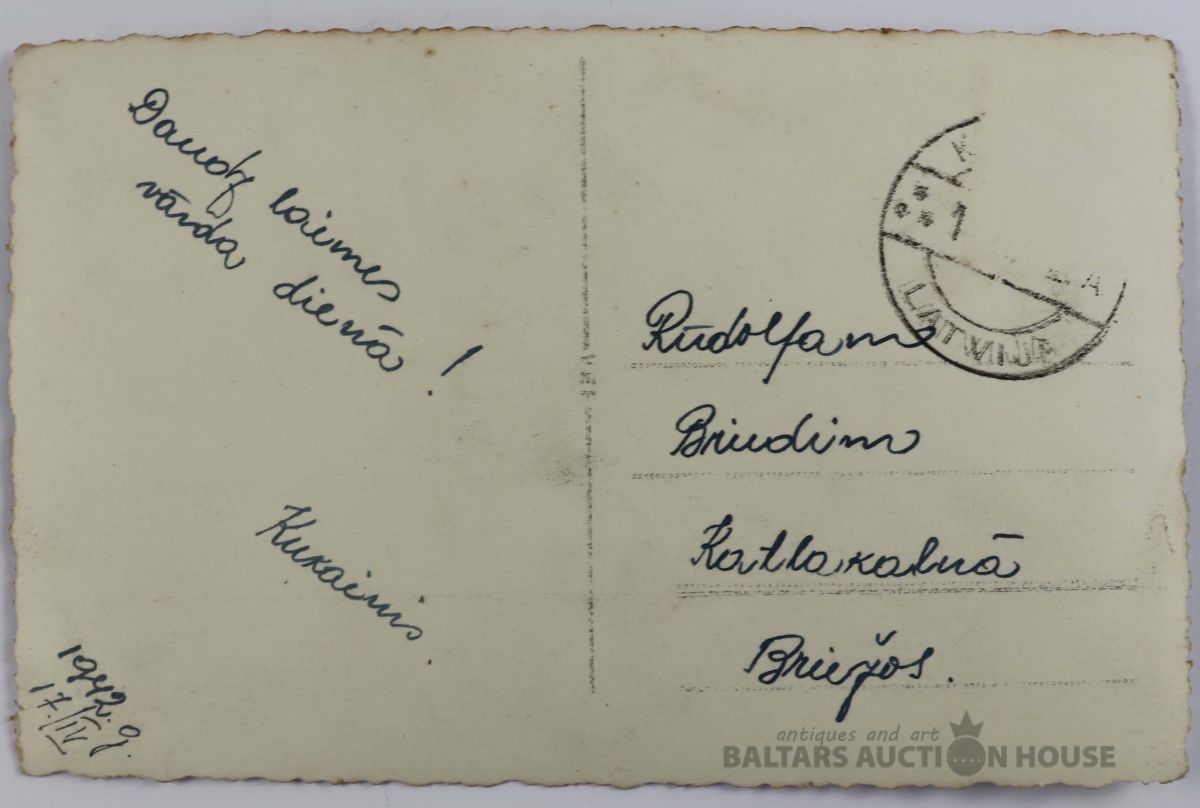 Daudz laimes
vārda dienā!
Kukainis.
1942. g.
17./IV
K
1
A
LATVIJA
Rūdolfam
Briedim
Katlakalnā
Briežos.
antiques and art
BALTARS AUCTION HOUSE